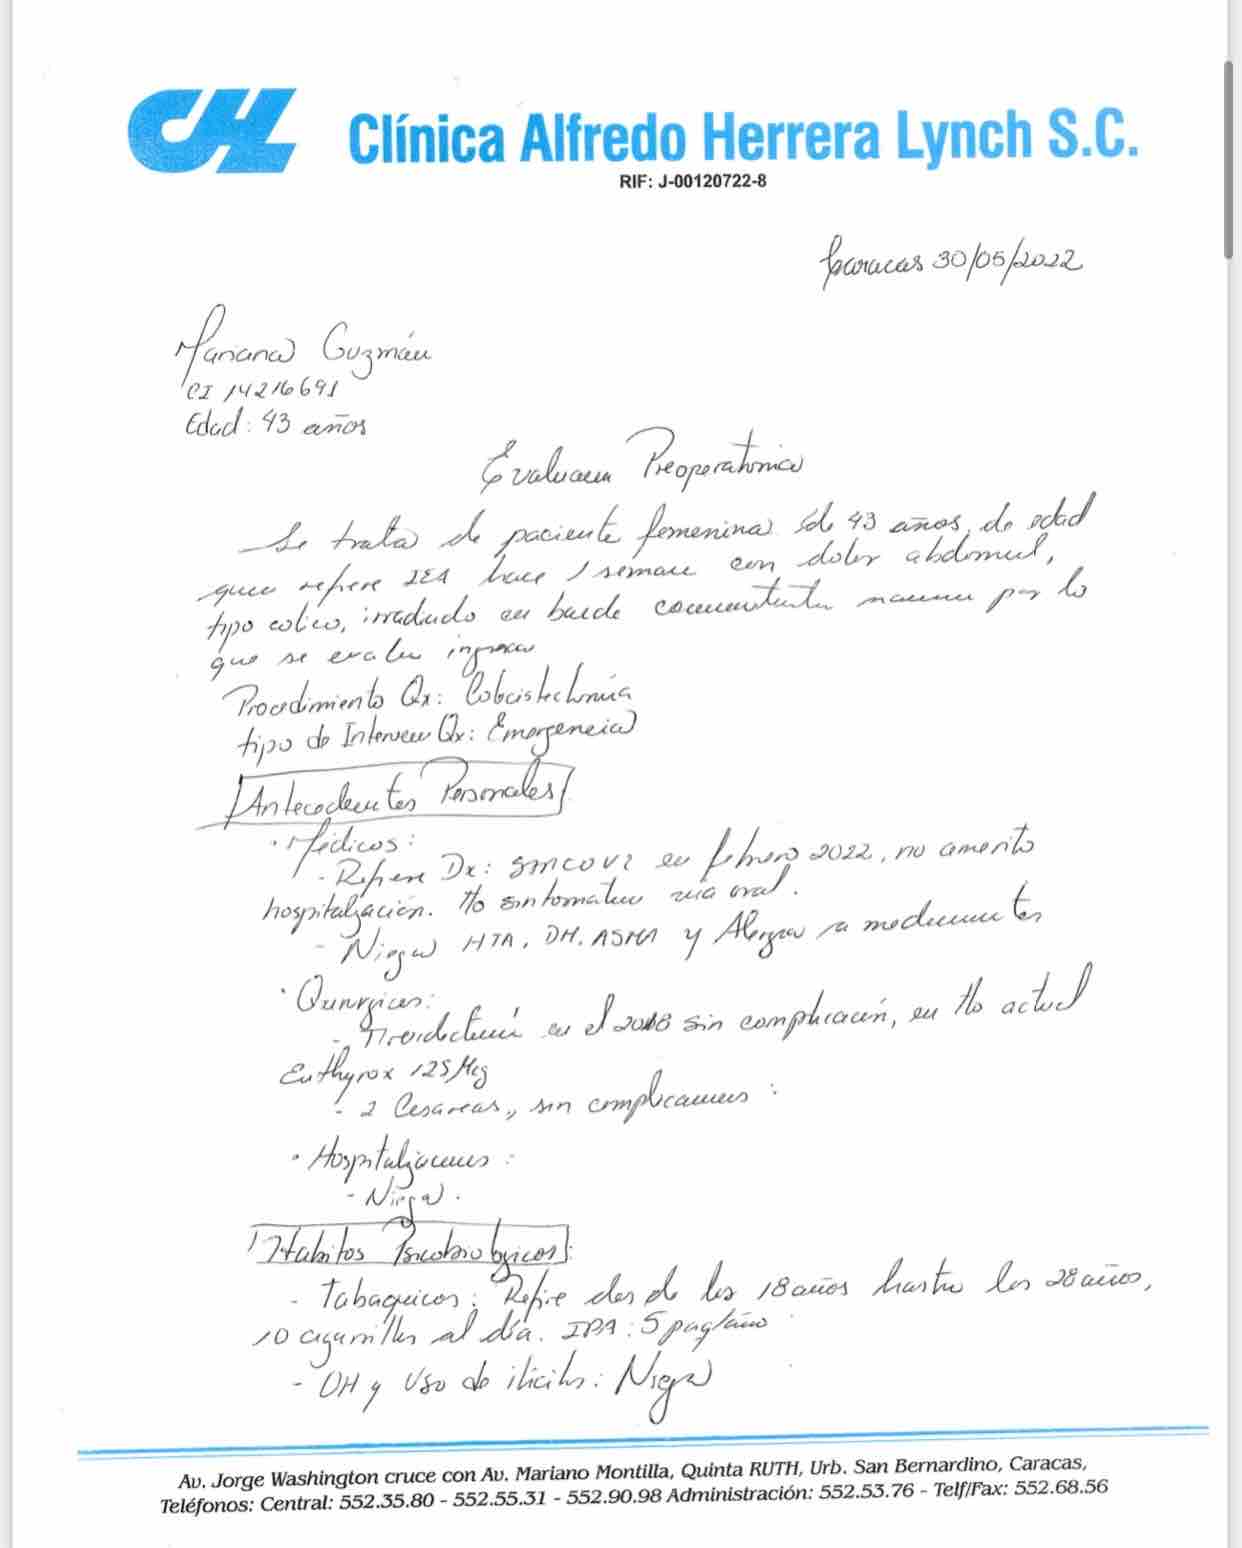 CHL
Clínica Alfredo Herrera Lynch S.C.
RIF: J-00120722-8
Caracas 30/05/2022
Mariana Guzmán
CI 14216691
Edad: 43 años
Evaluacion Preoperatoria
Se trata de paciente femenina de 43 años, de edad
quien refiere IEA hace 1 semana con dolor abdominal,
tipo colico, irradiado en banda concomitante nauseas por lo
que se evalua ingresa
Procedimiento Qx: Colecistectomía
tipo de Interven Qx: Emergencia
Antecedentes Personales
· Médicos:
- Refiere Dx: en febrero 2022, no amerito
hospitalización. Tto sintomatico via oral.
- Niega HTA, DM, ASMA y Alergia a medicamentos
· Quirurgicos:
- Tiroidectomía en el 2018 sin complicación, en Tto actual
Euthyrox 125 Mcg
- 2 Cesareas, sin complicaciones :
· Hospitalizaciones :
- Niega.
Habitos Psicobiologicos:
- Tabaquicos: Refire desde los 18 años hasta los 28 años,
10 cigarrillos al día. IPA: 5 paq/año
- OH y Uso de ilicitos: Niega
Av. Jorge Washington cruce con Av. Mariano Montilla, Quinta RUTH, Urb. San Bernardino, Caracas,
Teléfonos: Central: 552.35.80 - 552.55.31 - 552.90.98 Administración: 552.53.76 - Telf/Fax: 552.68.56